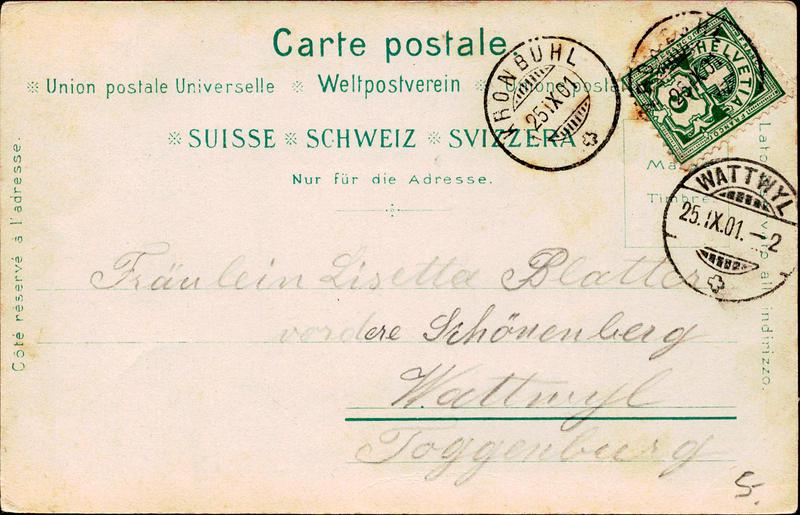 Carte postale.
※ Union postale Universelle ※ Weltpostverein ※ Unione postale
※ SUISSE ※ SCHWEIZ ※ SVIZZERA
Nur für die Adresse.
KRONBÜHL
25 IX 01
HELVETIA
FRANCO
25 IX 01
Ma
Timbre
WATTWYL
25.IX.01.-2
Côté réservé à l'adresse.
Lato all' indirizzo.
Fräulein Lisetta Blatter
vordere Schönenberg
Wattwyl
Toggenburg
5.